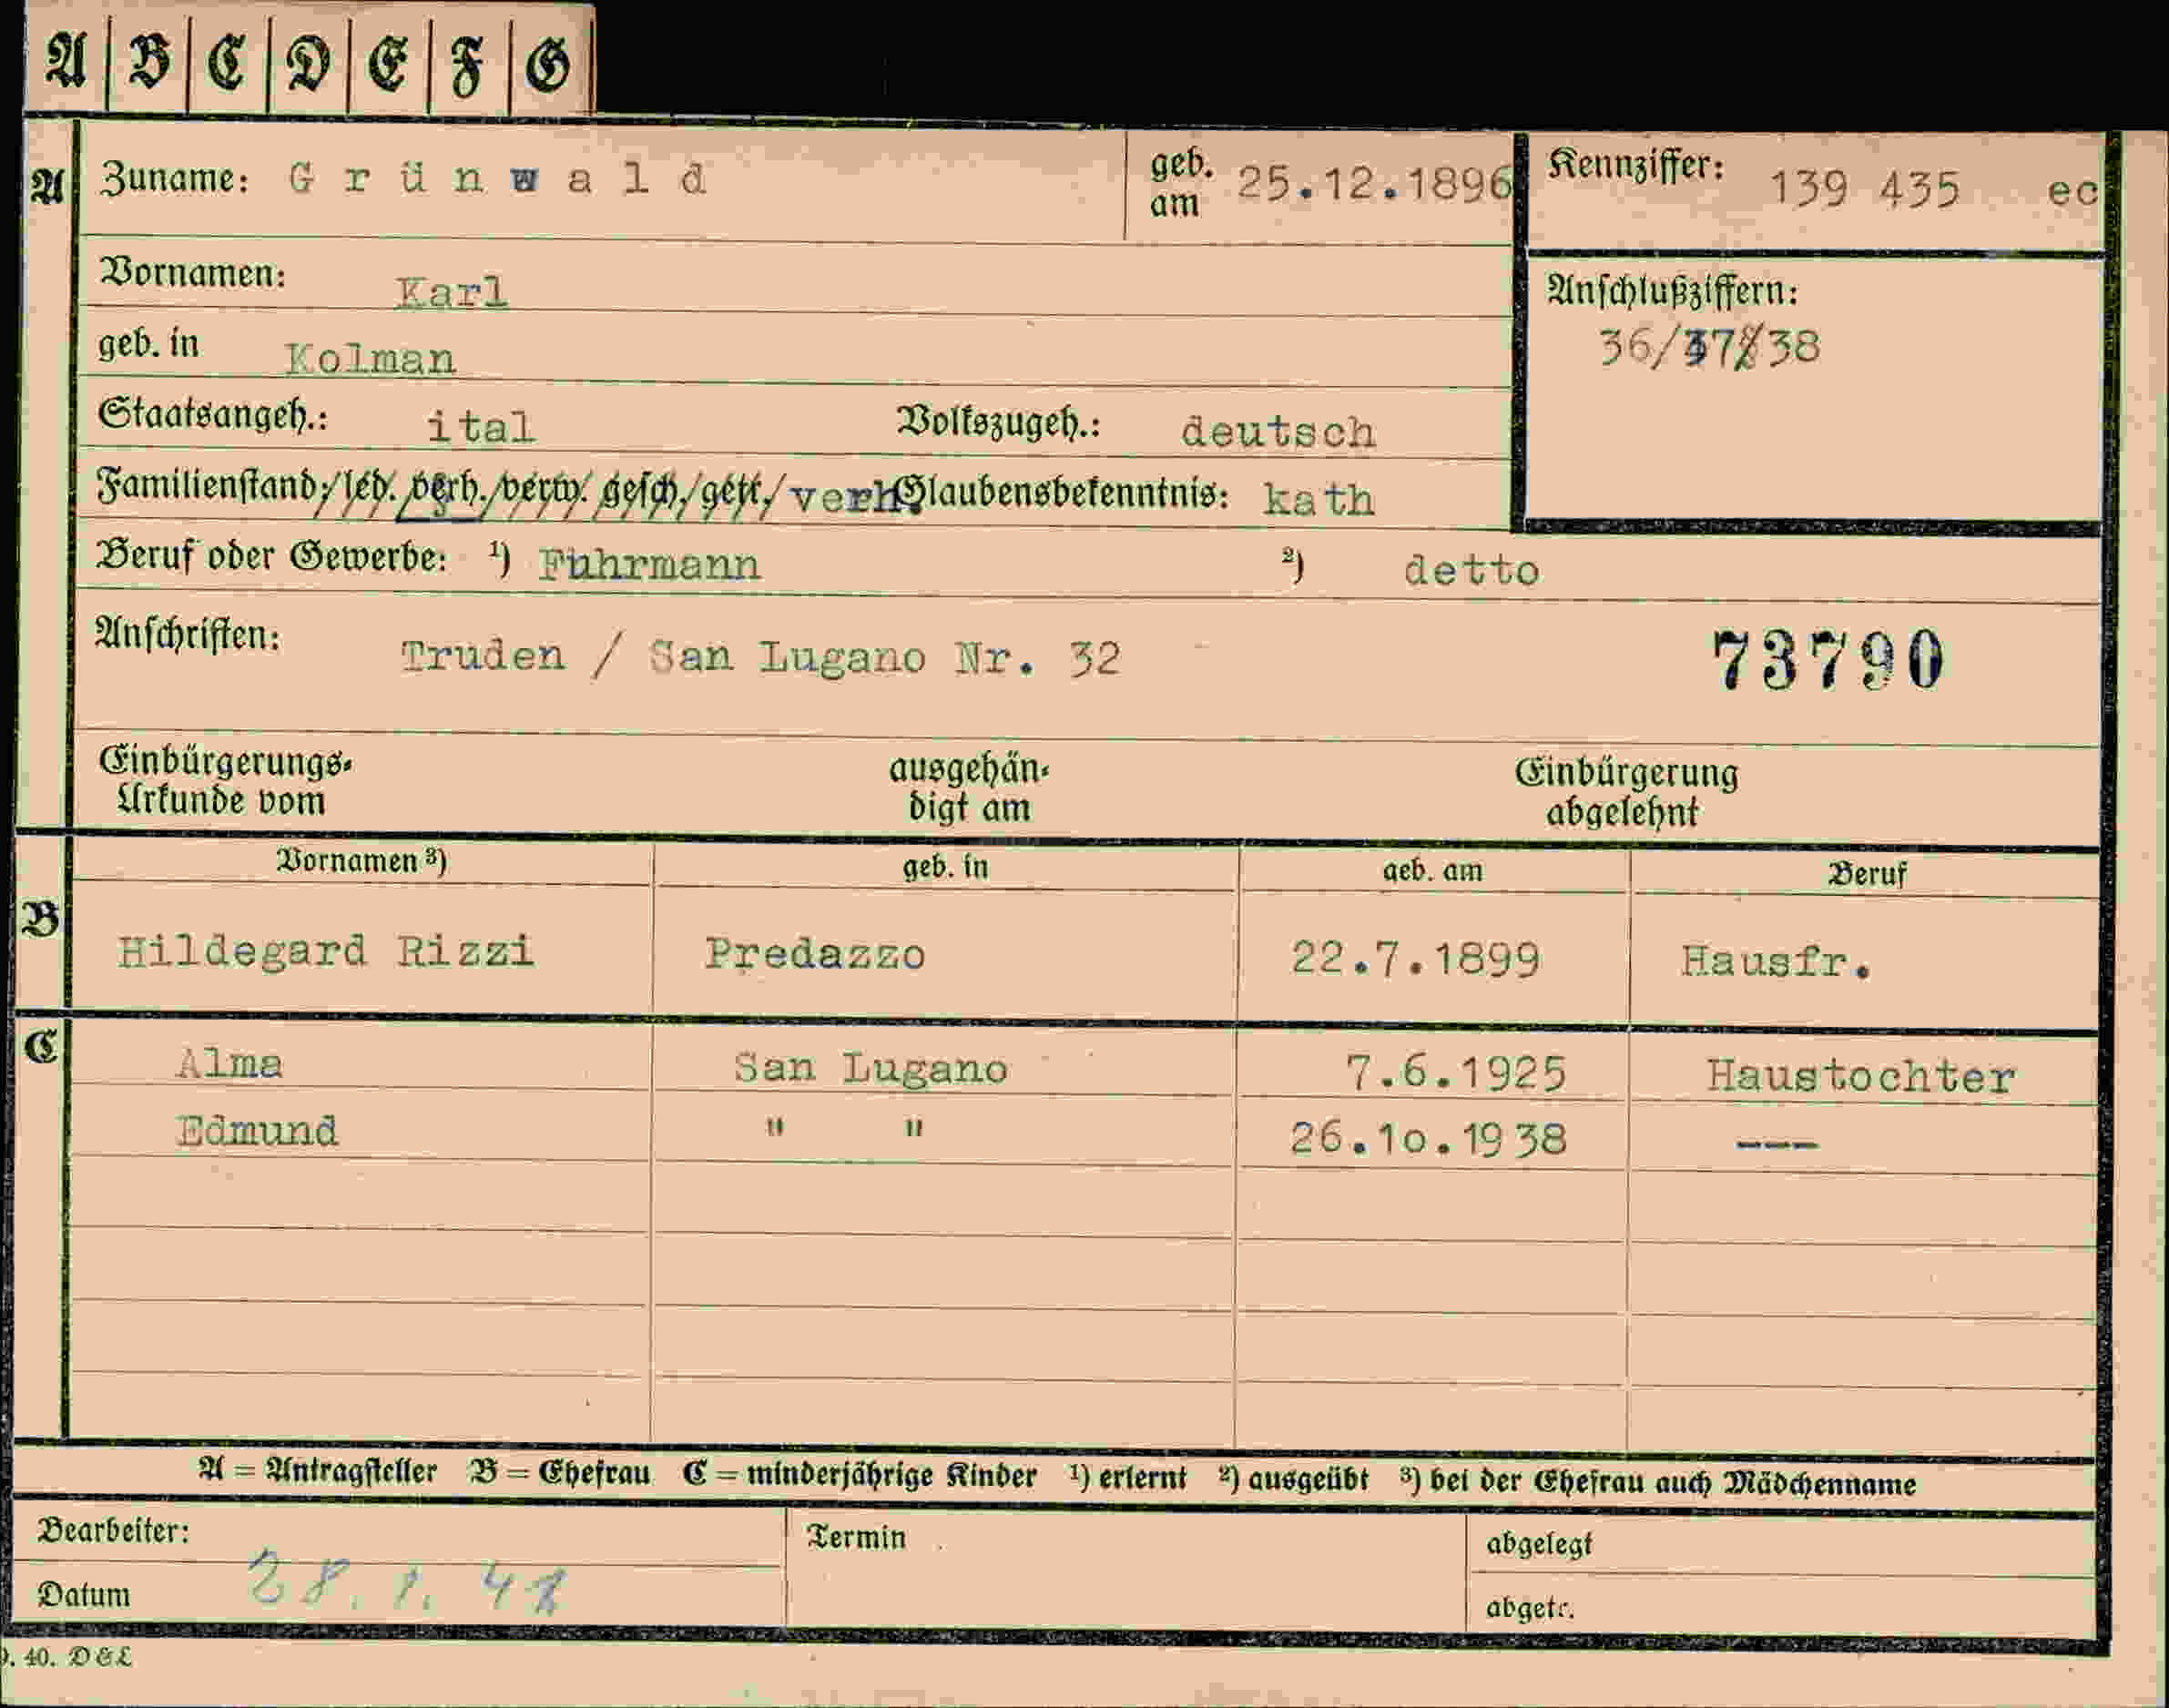 A B C D E F G
A Zuname: Grünwald geb. am 25.12.1896 Kennziffer: 139 435 ec
Vornamen: Karl
Anschlußziffern:
36/37/38
geb. in Kolman
Staatsangeh.: ital Volkszugeh.: deutsch
Familienstand: led. verh. verw. gesch. getr. verh. Glaubensbekenntnis: kath
Beruf oder Gewerbe: ¹) Fuhrmann ²) detto
Anschriften: Truden / San Lugano Nr. 32 73790
Einbürgerungs- ausgehän- Einbürgerung
Urkunde vom digt am abgelehnt
Vornamen ³) geb. in geb. am Beruf
B Hildegard Rizzi Predazzo 22.7.1899 Hausfr.
C Alma San Lugano 7.6.1925 Haustochter
Edmund " " 26.10.1938 ---
A = Antragsteller B = Ehefrau C = minderjährige Kinder ¹) erlernt ²) ausgeübt ³) bei der Ehefrau auch Mädchenname
Bearbeiter: Termin abgelegt
Datum 28. 1. 41 abgetr.
40. D&L